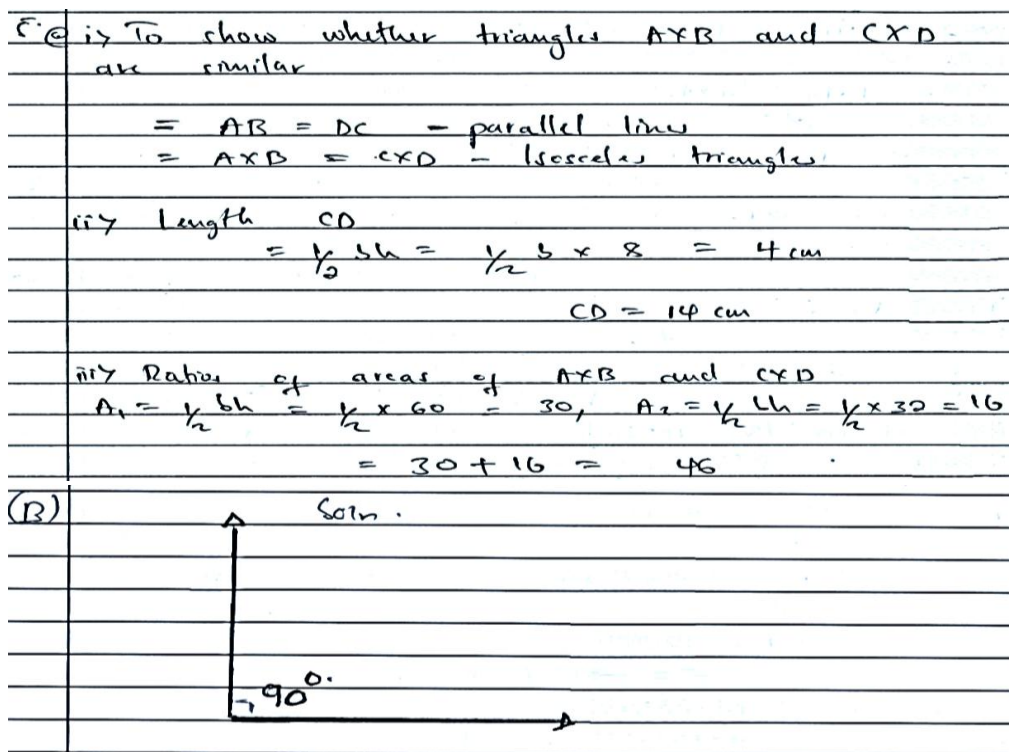 5.(a) i> To show whether triangles AXB and CXD
are similar
= AB = DC - parallel lines
= AXB = CXD - Isosceles triangles
ii> Length CD
= 1/2 bh = 1/2 b x 8 = 4 cm
CD = 14 cm
iii> Ratios of areas of AXB and CXD
A1 = 1/2 bh = 1/2 x 60 = 30, A2 = 1/2 bh = 1/2 x 32 = 16
= 30 + 16 = 46
(B) Soln.
90°